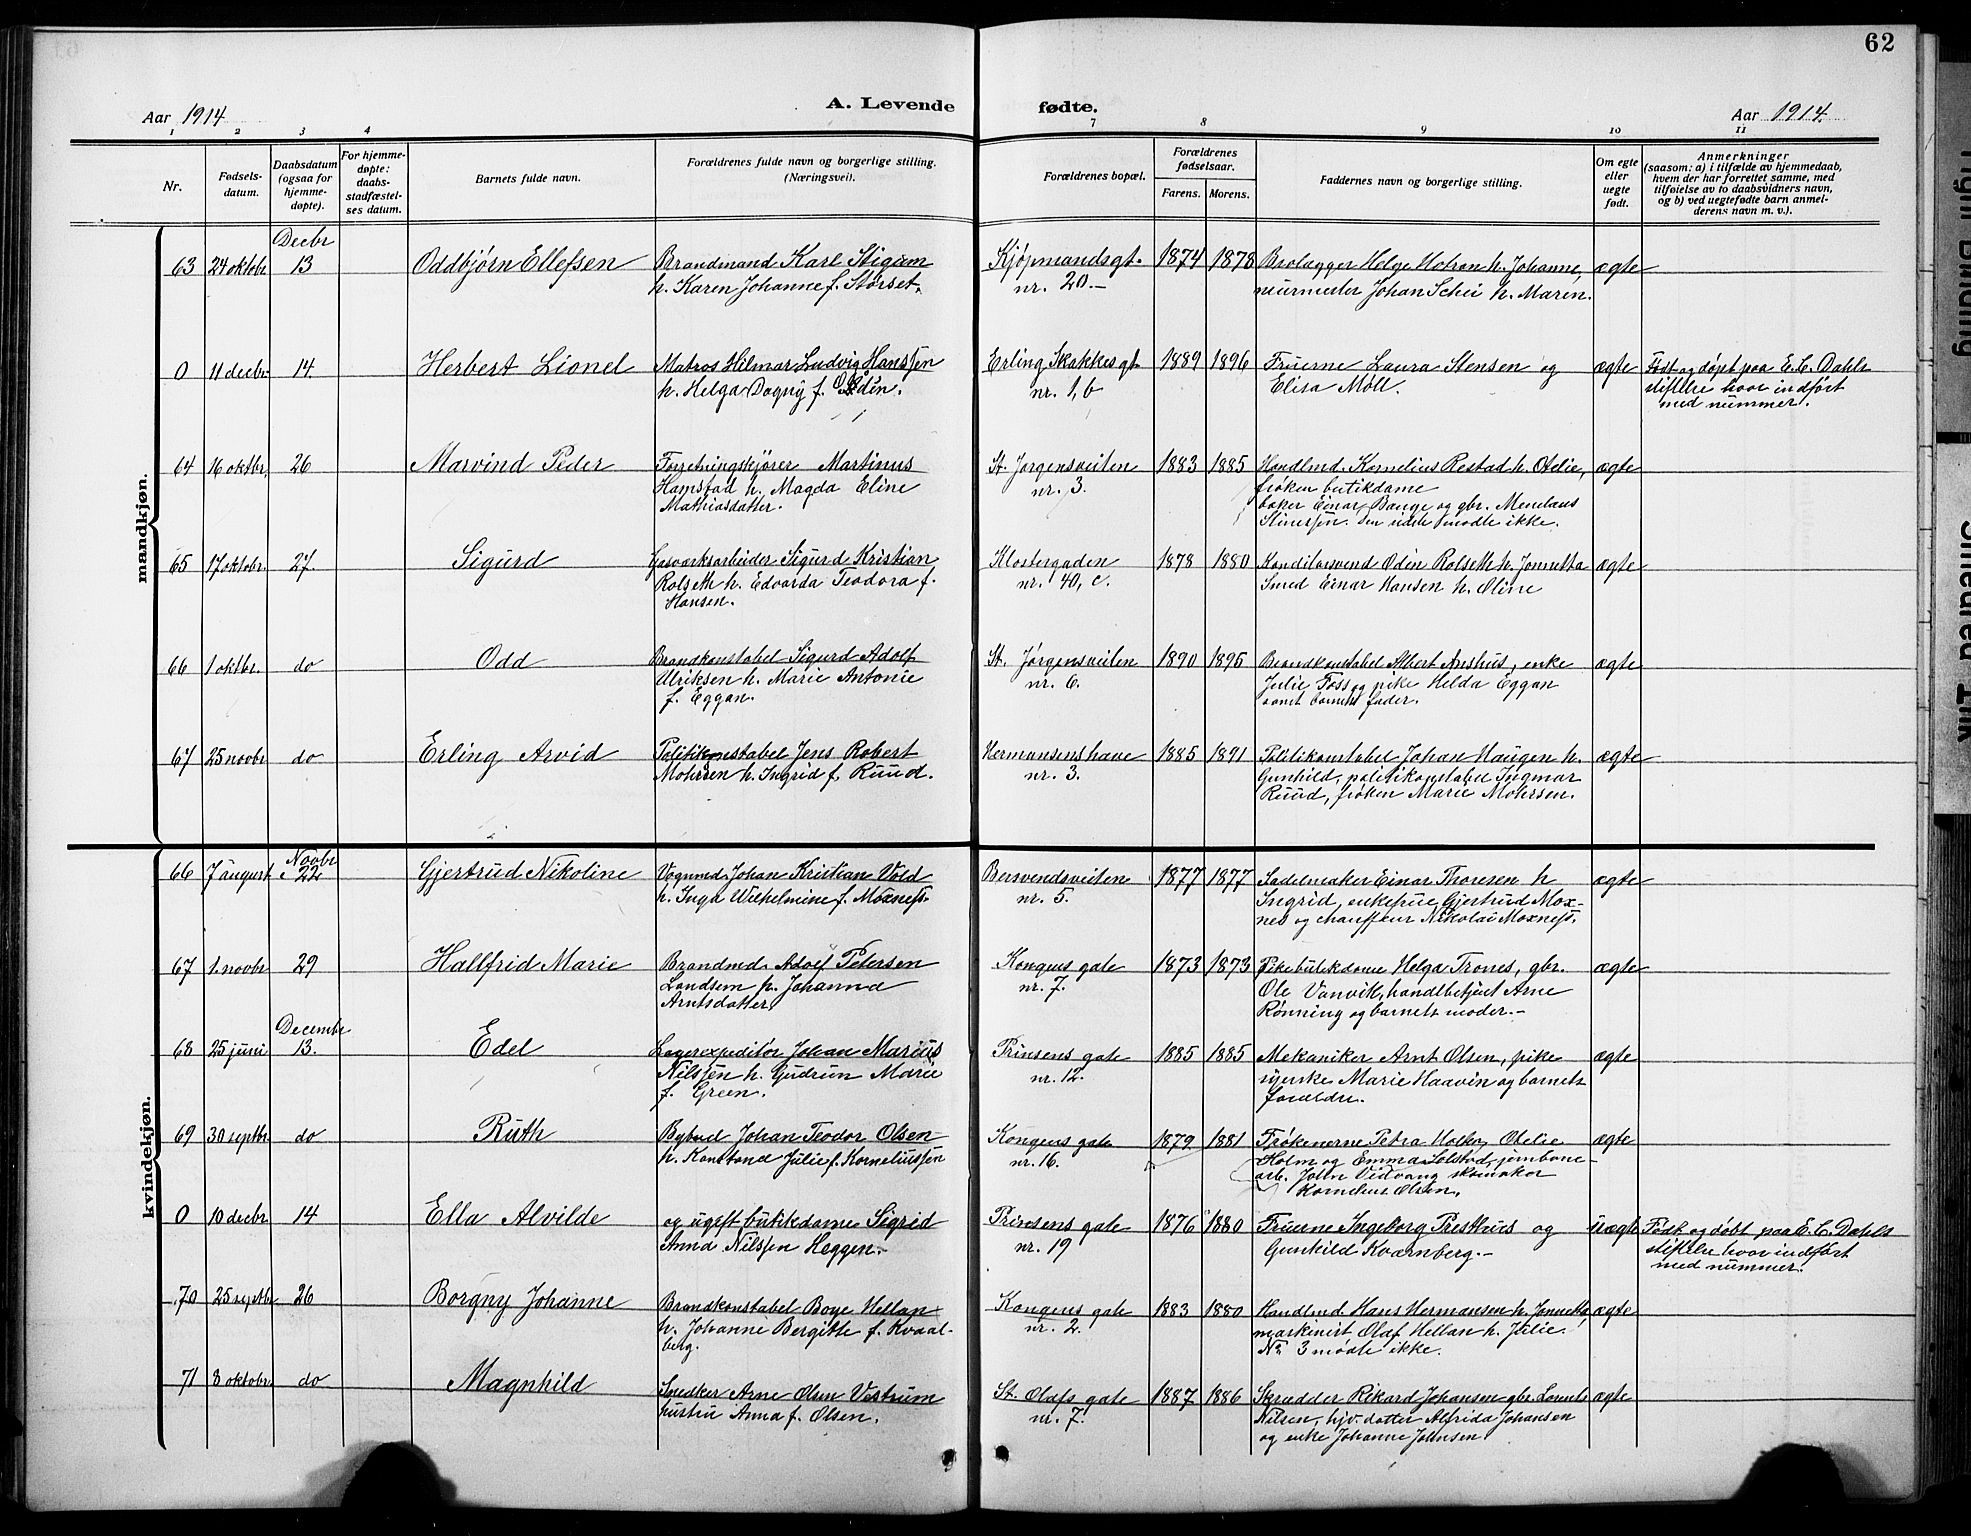 62
Aar 1914
A. Levende fødte.
Aar 1914.
1 2 3 4 7 8 9 10 11
Nr.
Fødsels-
datum.
Daabsdatum
(ogsaa for
hjemme-
døpte).
For hjemme-
døpte:
daabs-
stadfæstel-
ses datum.
Barnets fulde navn.
Forældrenes fulde navn og borgerlige stilling.
(Næringsvei).
Forældrenes bopæl.
Forældrenes
fødselsaar.
Farens. Morens.
Faddernes navn og borgerlige stilling.
Om egte
eller
uegte
født.
Anmerkninger
(saasom: a) i tilfælde av hjemmedaab,
hvem der har forrettet samme, med
tilføielse av to daabsvidners navn,
og b) ved uegtefødte barn anmel-
derens navn m. v.).
mandkjøn.
63 24 oktobr Decbr 13 Oddbjørn Ellefsen
Brandmand Karl Stigum
h. Karen Johanne f. Størset.
Kjøpmandsgt.
nr. 20.-
1874 1878
Brolægger Helge Motrøn h. Johanne,
murmester Johan Schei h. Maren.
ægte
0 11 decbr. 14. Herbert Lionel
Matros Hilmar Ludvig Hanssen
h. Helga Dagny f. Ødén.
Erling Skakkes gt.
nr. 1, b
1889 1896
Fruerne Laura Stensen og
Elisa Moll.
ægte
Født og døpt paa E. C. Dahls
stiftelse hvor indført
med nummer.
64 16 oktbr. 26 Marvind Peder
Forretningskjører Martinus
Hamstad h. Magda Eline
Mathiasdatter.
St. Jørgensveiten
nr. 3.
1883 1885
Handlmd. Kornelius Restad h. Otelie,
frøken butikdame
baker Einar Bange og gbr. Menelaus
Stinessen. Den sidste mødte ikke.
ægte
65 17 oktobr. 27. Sigurd
Gasverksarbeider Sigurd Kristian
Rolseth h. Edvarda Teodora f.
Hansen.
Klostergaden
nr. 40, c.
1878 1880
Konditorsvend Odin Rolseth h. Jonetta
Smed Einar Hansen h. Oline
ægte
66 1 oktbr. do Odd
Brandkonstabel Sigurd Adolf
Ulriksen h. Marie Antonie
f. Eggan.
St. Jørgensveiten
nr. 6.
1890 1895
Brandkonstabel Albert Aushus, enke
Julie Foss og pike Helda Eggan
samt barnets fader.
ægte
67 25 novbr do Erling Arvid
Politikonstabel Jens Robert
Mohrsen h. Ingrid f. Ruud.
Hermansenshave
nr. 3.
1885 1891
Politikonstabel Johan Haugen h.
Gunhild, politikonstabel Ingmar
Ruud, frøken Marie Mohrsen.
ægte
kvindekjøn.
66 7 august Novbr 22 Gjertrud Nikoline
Vognmd. Johan Kristian Vold
h. Inga Wilhelmine f. Moxness.
Bersvendsveiten
nr. 5.
1877 1877
Sadelmaker Einar Thoresen h
Ingrid, enkefrue Gjertrud Mox-
nes og chauffeur Nikolai Moxness.
ægte
67 1. novbr 29 Hallfrid Marie
Brandmd. Adolf Petersen
Landsem h. Johanna
Arntsdatter.
Kongens gate
nr. 7.
1873 1873
Pike butikdame Helga Trones, gbr.
Ole Vanvik, handlbetjent Arne
Rønning og barnets moder.-
ægte
68 25 juni Decembr 13. Edel
Lagerexpeditør Johan Marius
Nilssen h. Gudrun Marie
f. Green.
Prinsens gate
nr. 12.
1885 1885
Mekaniker Arnt Olsen, pike
syerske Marie Haavin og barnets
forældre.
ægte
69 30 septbr. do Ruth
Bybud Johan Teodor Olsen
h. Konstance Julie f. Korneliussen
Kongens gate
nr. 16.
1879 1881
Frøknerne Petra Holby, Otelie
Holm og Emma Solstad, jernbane-
arb. John Vidvang skomaker
Kornelius Olsen.
ægte
0 10 decbr. 14 Ella Alvilde
og ugift butikdame Sigrid
Anna Nilssen Heggen.-
Prinsens gate
nr. 19
1876 1880
Fruerne Ingeborg Presthus og
Gunhild Kværnberg.-
uægte
Født og døbt paa E. C. Dahls
stiftelse hvor indført
med nummer.
70 25 septbr. 26 Borgny Johanne
Brandkonstabel Boye Hellan
h. Johanne Bergitte f. Kvaal-
berg.
Kongens gate
nr. 2.
1883 1880
Handlmd. Hans Hermansen h. Jonetta,
maskinist Olaf Hellan h. Julie.
No 3 mødte ikke.
ægte
71 8 oktobr. do Magnhild
Snedker Arne Olsen Vestrum
hustru Anna f. Olsen.
St. Olafs gate
nr. 7.
1887 1886
Skrædder Rikard Johansen gbr. Lorents
Nilsen, hjv. datter Alfrida Johansen
og enke Johanne Johnsen
ægte